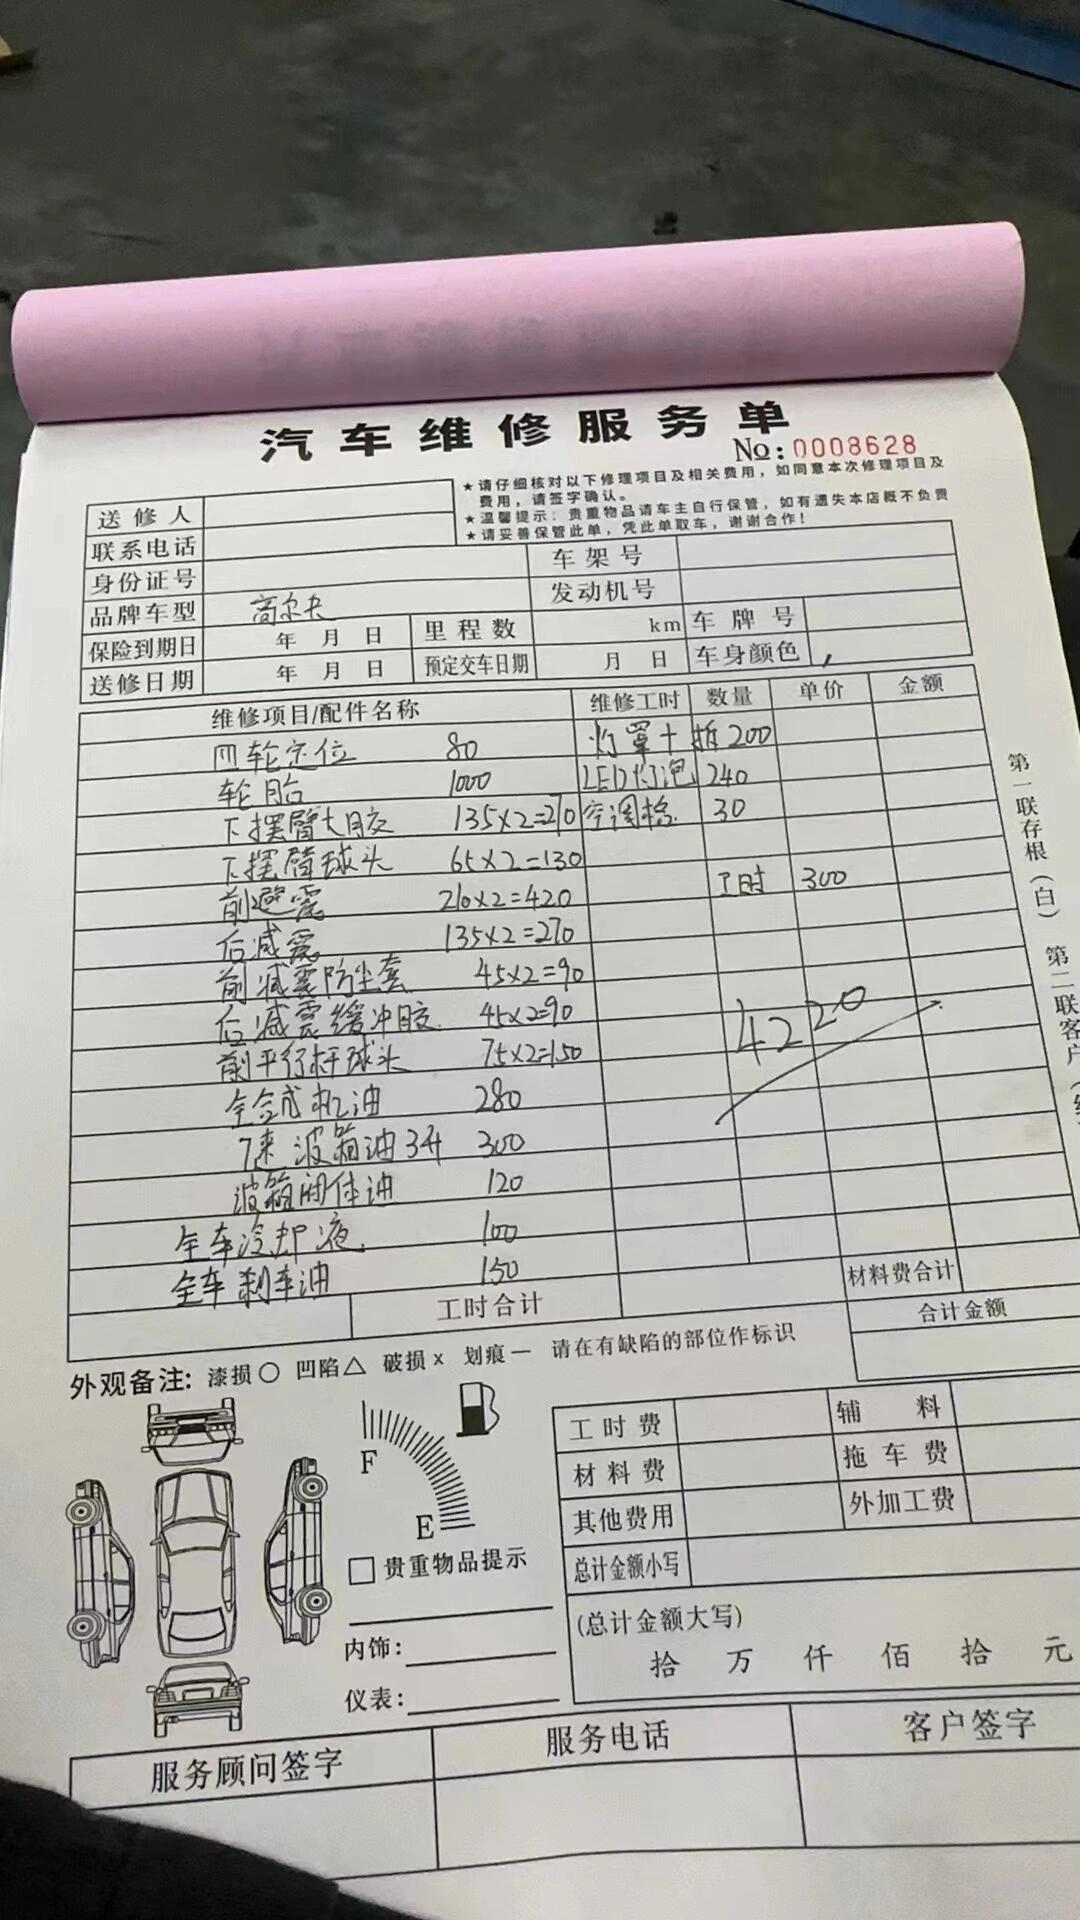 汽车维修服务单
No：0008628
★请仔细核对以下修理项目及相关费用，如同意本次修理项目及
费用，请签字确认。
★温馨提示：贵重物品请车主自行保管，如有遗失本店概不负责
★请妥善保管此单，凭此单取车，谢谢合作！
送修人
联系电话
身份证号 车架号
品牌车型 高尔夫 发动机号
保险到期日 年 月 日 里程数 km 车牌号
送修日期 年 月 日 预定交车日期 月 日 车身颜色
维修项目/配件名称 维修工时 数量 单价 金额
四轮定位 80 灯罩十拆 200
轮胎 1000 LED灯泡 240
下摆臂大胶 135×2=270 空调格 30
下摆臂球头 65×2=130
前避震 210×2=420 工时 300
后减震 135×2=270
前减震防尘套 45×2=90
后减震缓冲胶 45×2=90 4220
前平行杆球头 75×2=150
全合成机油 280
7速波箱油3升 300
波箱阀体油 120
全车冷却液 100
全车刹车油 150
工时合计 材料费合计
合计金额
第一联存根（白） 第二联客户
外观备注: 漆损○ 凹陷△ 破损× 划痕— 请在有缺陷的部位作标识
F
E
贵重物品提示
内饰:
仪表:
工时费 辅料
材料费 拖车费
其他费用 外加工费
总计金额小写
(总计金额大写)
拾 万 仟 佰 拾 元
服务顾问签字 服务电话 客户签字